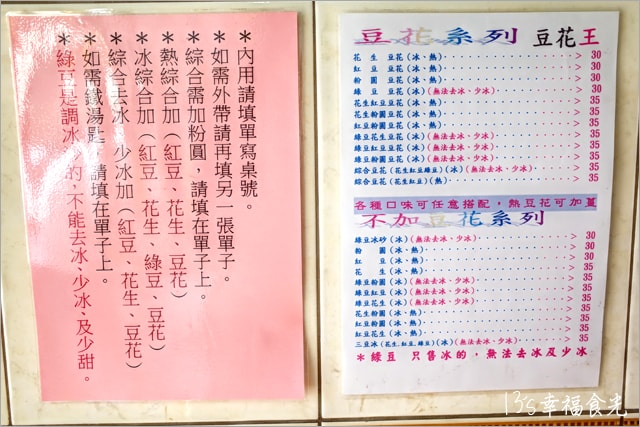 ＊內用請填單寫桌號。
＊如需外帶請再填另一張單子。
＊綜合需加粉圓，請填在單子上。
＊熱綜合加（紅豆、花生、豆花）
＊冰綜合加（紅豆、花生、綠豆、豆花）
＊綜合去冰 少冰加（紅豆、花生、豆花）
＊如需鐵湯匙，請填在單子上。
＊綠豆是調冰 的，不能去冰、少冰、及少甜。
豆花系列 豆花王
花生 豆花(冰、熱) > 30
紅豆 豆花(冰、熱) > 30
粉圓 豆花(冰、熱) > 30
綠豆 豆花(冰)(無法去冰、少冰) > 30
花生紅豆豆花(冰、熱) > 35
花生粉圓豆花(冰、熱) > 35
紅豆粉圓豆花(冰、熱) > 35
綠豆花生豆花(冰)(無法去冰、少冰) > 35
綠豆紅豆豆花(冰)(無法去冰、少冰) > 35
綠豆粉圓豆花(冰)(無法去冰、少冰) > 35
綜合豆花(花生紅豆綠豆)(冰)(無法去冰、少冰) > 35
綜合豆花(花生紅豆)(熱) > 35
各種口味可任意搭配，熱豆花可加薑
不加豆花系列
綠豆冰砂(冰)(無法去冰、少冰) > 30
粉圓(冰、熱) > 30
紅豆(冰、熱) > 30
花生(冰、熱) > 35
綠豆粉圓(冰)(無法去冰、少冰) > 35
綠豆紅豆(冰)(無法去冰、少冰) > 35
綠豆花生(冰)(無法去冰、少冰) > 35
花生粉圓(冰、熱) > 35
紅豆粉圓(冰、熱) > 35
花生紅豆(冰、熱) > 35
三豆冰(花生,紅豆,綠豆)(冰)(無法去冰、少冰) > 35
＊綠豆 只售冰的，無法去冰及少冰
13's幸福食光